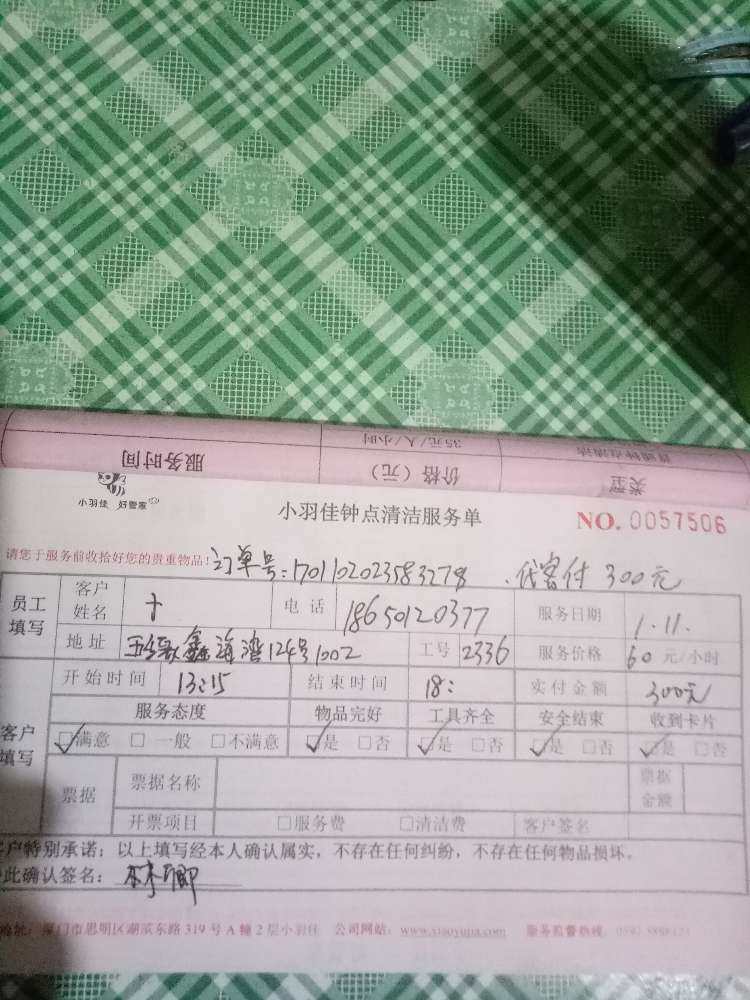 35元/人/小时
服务时间 价格（元） 类型
小羽佳 好管家
小羽佳钟点清洁服务单 NO. 0057506
请您于服务前收拾好您的贵重物品! 订单号:1701102023583278 、代客付 300元
员工填写 客户姓名 电话 18650120377 服务日期 1.11.
地址 鑫海湾124号1002 工号 2336 服务价格 60 元/小时
开始时间 13:15 结束时间 18: 实付金额 300元
客户填写 服务态度 物品完好 工具齐全 安全结束 收到卡片
☑满意 □ 一般 □不满意 ☑是 □否 ☑是 □否 ☑是 □否 ☑是 □否
票据 票据名称 票据金额
开票项目 □服务费 □清洁费 客户签名
客户特别承诺：以上填写经本人确认属实，不存在任何纠纷，不存在任何物品损坏。
此确认签名：
地址：厦门市思明区湖滨东路 319 号 A 幢 2 层小羽佳 公司网站：www.xiaoyujia.com 服务监督热线：